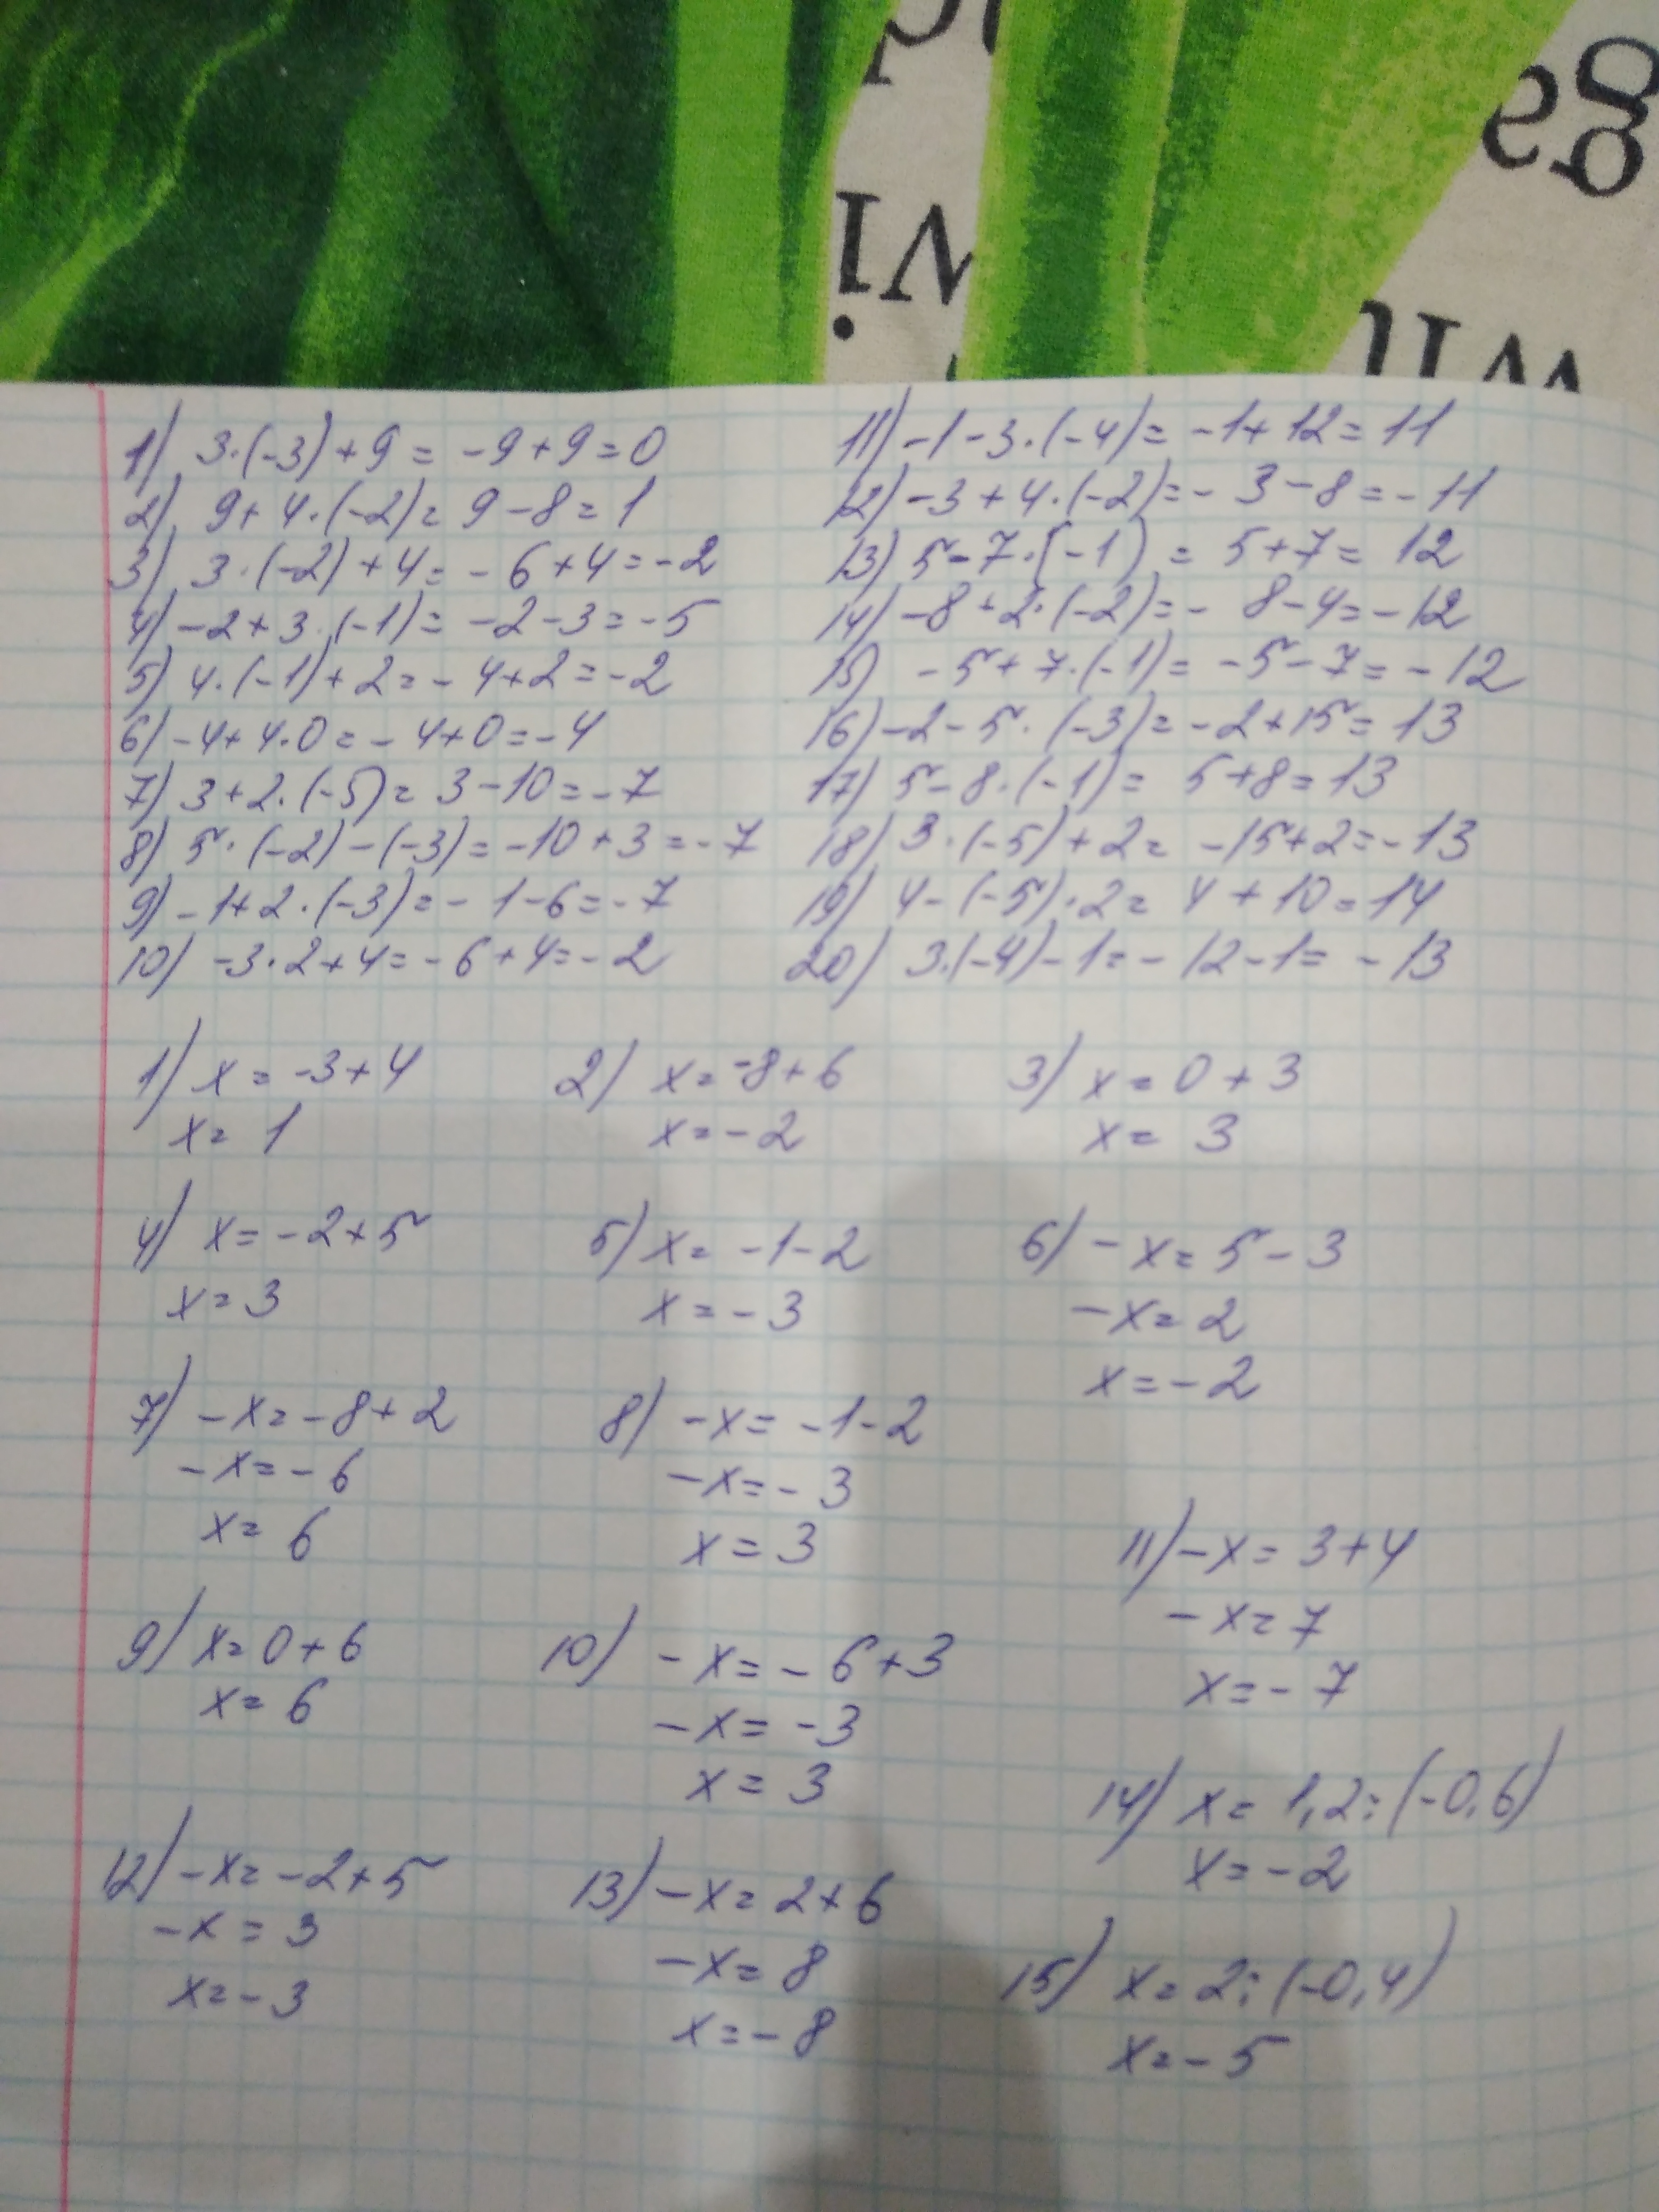 1) 3·(-3)+9=-9+9=0
2) 9+4·(-2)=9-8=1
3) 3·(-2)+4=-6+4=-2
4) -2+3·(-1)=-2-3=-5
5) 4·(-1)+2=-4+2=-2
6) -4+4·0=-4+0=-4
7) 3+2·(-5)=3-10=-7
8) 5·(-2)-(-3)=-10+3=-7
9) -1+2·(-3)=-1-6=-7
10) -3·2+4=-6+4=-2
11) -1-3·(-4)=-1+12=11
12) -3+4·(-2)=-3-8=-11
13) 5-7·(-1)=5+7=12
14) -8+2·(-2)=-8-4=-12
15) -5+7·(-1)=-5-7=-12
16) -2-5·(-3)=-2+15=13
17) 5-8·(-1)=5+8=13
18) 3·(-5)+2=-15+2=-13
19) 4-(-5)·2=4+10=14
20) 3·(-4)-1=-12-1=-13
1) x=-3+4
x=1
2) x=-8+6
x=-2
3) x=0+3
x=3
4) x=-2+5
x=3
5) x=-1-2
x=-3
6) -x=5-3
-x=2
x=-2
7) -x=-8+2
-x=-6
x=6
8) -x=-1-2
-x=-3
x=3
9) x=0+6
x=6
10) -x=-6+3
-x=-3
x=3
11) -x=3+4
-x=7
x=-7
12) -x=-2+5
-x=3
x=-3
13) -x=2+6
-x=8
x=-8
14) x=1,2:(-0,6)
x=-2
15) x=2:(-0,4)
x=-5